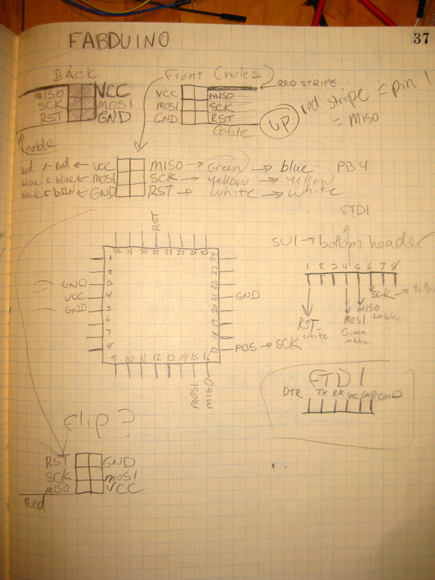 FABDUINO
37
BACK
MISO VCC
SCK MOSI
RST GND
Front (holes)
VCC MISO
MOSI SCK
GND RST
RED STRIPE
Cable
UP
red stripe = pin 1
= MISO
cable
red ← red ← VCC MISO → Green → blue PB4
blue ← blue ← MOSI SCK → Yellow → Yellow
← GND RST → White → White
FTDI
SV1 → bottom header
1 2 3 4 5 6 7 8
RST
white
MOSI
Green
MISO
SCK →
RST
32 31 30 29 28 27 26 25
1 24
2 23
GND 3 22
VCC 4 21 GND
GND 5 20
6 19
7 18
8 17 PB5 → SCK
9 10 11 12 13 14 15 16
MOSI
MISO
FTDI
DTR TX RX VCC GND
Flip?
RST GND
SCK MOSI
MISO VCC
Red